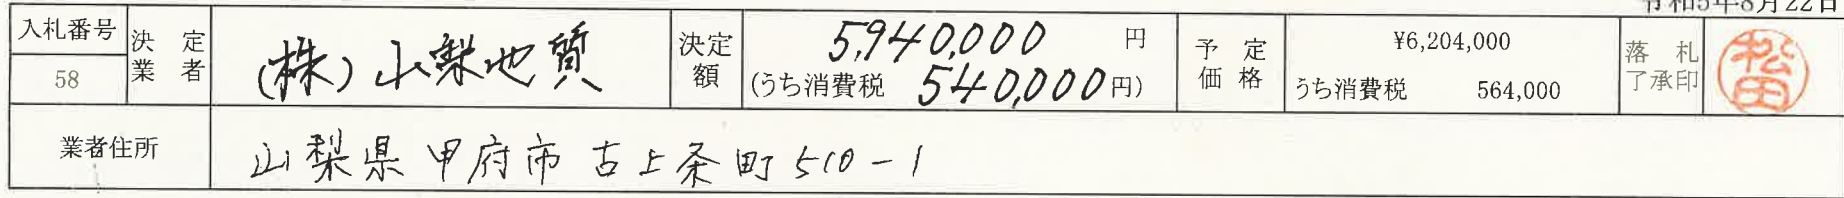 令和5年8月22日
入札番号 58
決定業者 (株)山梨地質
決定額 5,940,000 円
(うち消費税 540,000 円)
予定価格 ¥6,204,000
うち消費税 564,000
落札了承印 松田
業者住所 山梨県甲府市古上条町510-1